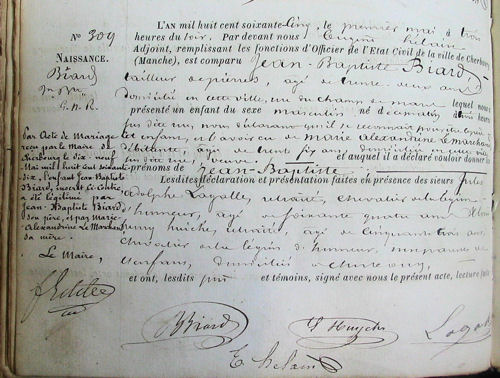 N.º 309
NAISSANCE.
Biard
Jn Bte
G. N. R.
Par Acte de Mariage
reçu par le Maire de
Cherbourg le dix neuf
Mai mil huit cent soixante
dix, l'enfant Jean Baptiste
Biard, inscrit ci-contre,
a été légitimé par
Jean Baptiste Biard,
son père, et par Marie
Alexandrine Le Marchand
sa mère.
Le Maire,
L'AN mil huit cent soixante-Cinq, le premier mai à trois
heures du soir. Par devant nous Eugène helain
Adjoint, remplissant les fonctions d'Officier de l'Etat Civil de la ville de Cherbourg
(Manche), est comparu Jean-Baptiste Biard
tailleur de pierres, agé de trente deux ans
Domicilié en cette ville, rue du champ de mars lequel nous
présenté un enfant du sexe masculin né
enfant, marie alexandrine Le marchand
débitante, agée de trente six ans domiciliée
veuve et auquel il a déclaré vouloir donner
prénoms de Jean-Baptiste
Lesdites déclaration et présentation faites en présence des sieurs Jules
adolphe Lagalle, retraité, chevalier de la légion
d'honneur, agé de soixante quatre ans
huiché, retraité, agé de cinquante trois ans
chevalier de la légion d'honneur, non parents de
l'enfant, domiciliés à Cherbourg
et ont, lesdits père et témoins, signé avec nous le présent acte, lecture faite
JBiard
E. helain